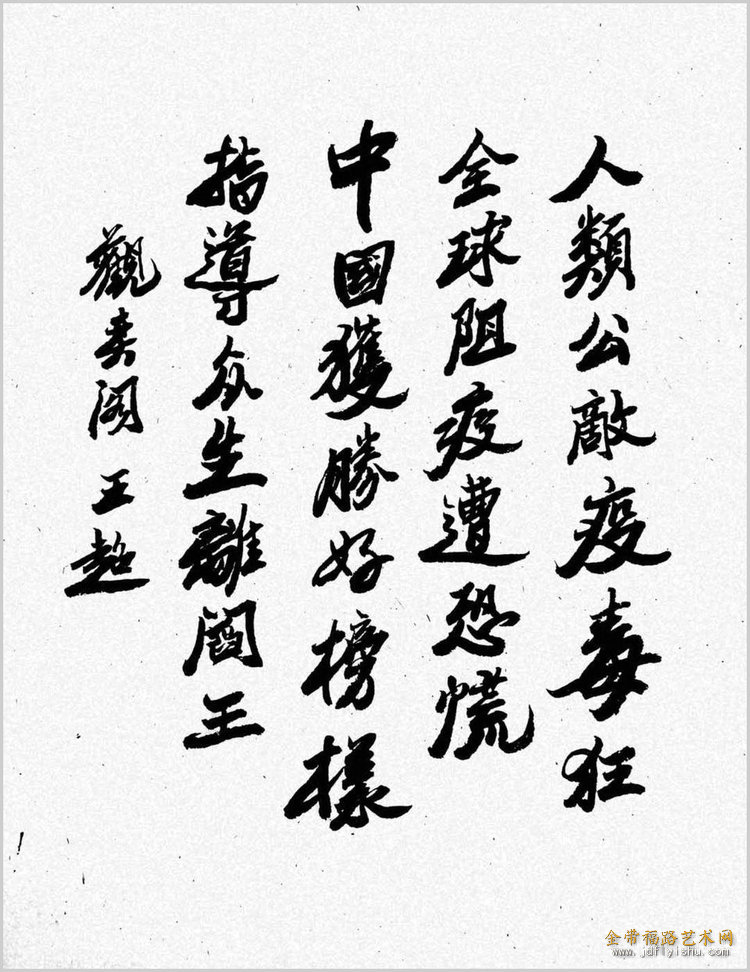 人類公敵疫毒狂
全球阻疫遭恐慌
中國獲勝好榜樣
指導众生離閻王
觀美阁 王超
金带福路艺术网
www.jdflyishu.com